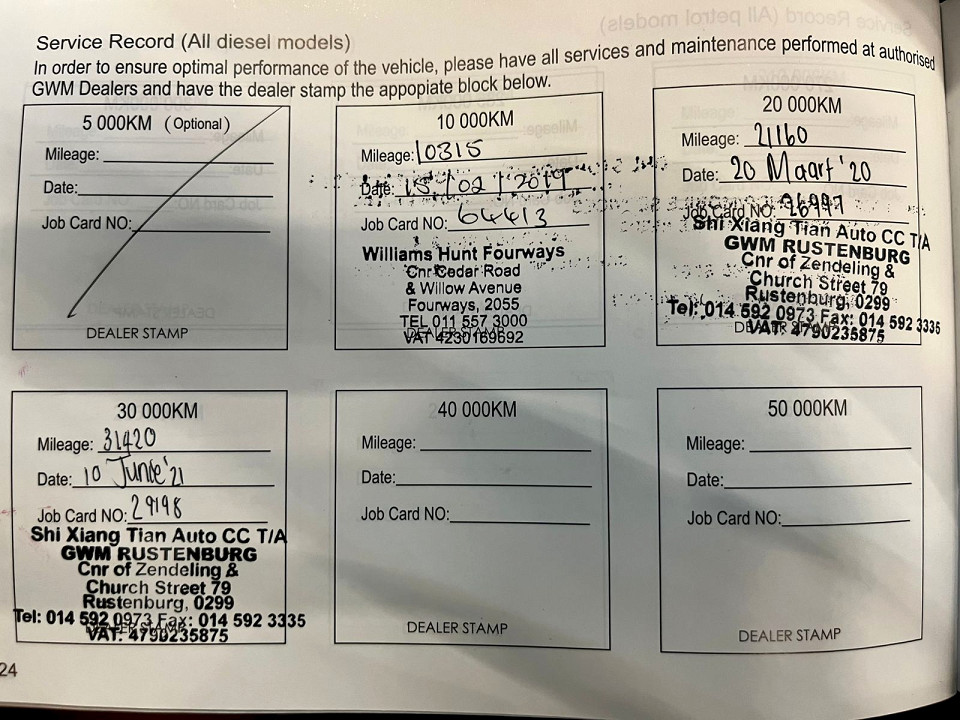 Service Record (All diesel models)
In order to ensure optimal performance of the vehicle, please have all services and maintenance performed at authorised
GWM Dealers and have the dealer stamp the appopiate block below.
5 000KM (Optional)
Mileage:
Date:
Job Card NO:
DEALER STAMP
10 000KM
Mileage: 10315
Date: 15/02/2019
Job Card NO: 64413
Williams Hunt Fourways
Cnr Cedar Road
& Willow Avenue
Fourways, 2055
TEL 011 557 3000
DEALER STAMP
VAT 4230169692
20 000KM
Mileage: 21160
Date: 20 Maart '20
Job Card NO:
Shi Xiang Tian Auto CC T/A
GWM RUSTENBURG
Cnr of Zendeling &
Church Street 79
Rustenburg, 0299
Tel: 014 592 0973 Fax: 014 592 3335
DEALER STAMP
VAT: 4790235875
30 000KM
Mileage: 31420
Date: 10 Junie '21
Job Card NO: 29198
Shi Xiang Tian Auto CC T/A
GWM RUSTENBURG
Cnr of Zendeling &
Church Street 79
Rustenburg, 0299
Tel: 014 592 0973 Fax: 014 592 3335
DEALER STAMP
VAT: 4790235875
40 000KM
Mileage:
Date:
Job Card NO:
DEALER STAMP
50 000KM
Mileage:
Date:
Job Card NO:
DEALER STAMP
24